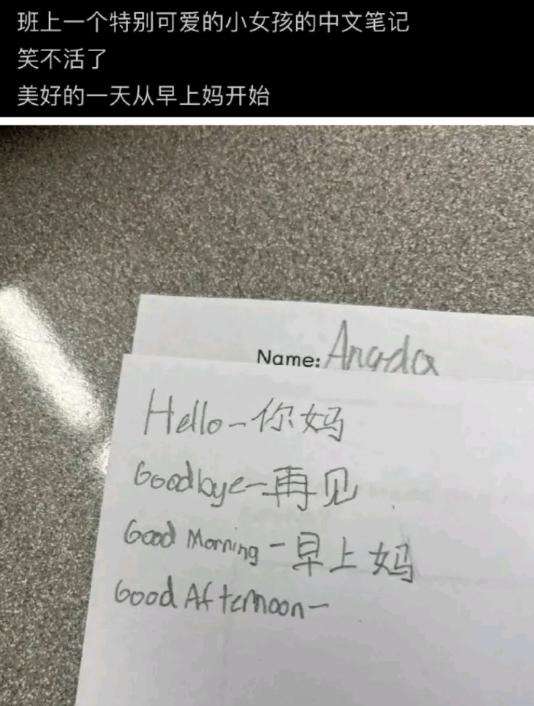 班上一个特别可爱的小女孩的中文笔记
笑不活了
美好的一天从早上妈开始
Name: Anada
Hello - 你妈
Goodbye - 再见
Good Morning - 早上妈
Good Afternoon -